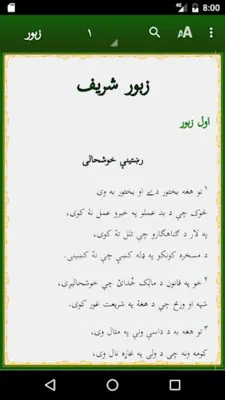 8:00
زبور ۱ AA
زبور شریف
اول زبور
رښتینې خوشحالی
۱ نو هغه بختور دے او بختور به وی
څوک چې د بد عملو په خبرو عمل نۀ کوی،
په لار د ګناهګارو چې تلل نۀ کوی،
د مسخره کونکو په ډله کښې چې کښینی.
۲ خو په قانون د مالِک خُدائ چې خوشحالیږی،
شپه او ورځ چې د هغۀ په شریعت غور کوی.
۳ نو هغه به د داسې ونې په مثال وی،
کومه ونه چې د ولې په غاړه نال وی،